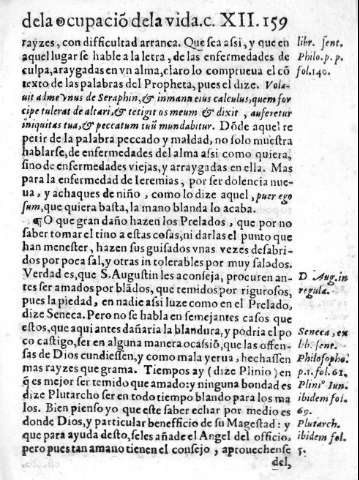 dela ocupació dela vida.c. XII. 159
rayzes, con difficultad arranca. Que sea assi, y que en
aquel lugar se hable a la letra, de las enfermedades de
culpa, araygadas en vn alma, claro lo comprueua el cõ
texto de las palabras del Propheta, pues el dize. Vola-
uit ad me vnus de Seraphin, & in manu eius calculus, quem for
cipe tulerat de altari, & tetigit os meum & dixit, auferetur
iniquitas tua, & peccatum tuũ mundabitur. Dõde aquel re
petir de la palabra peccado y maldad, no solo muestra
hablarse, de enfermedades del alma assi como quiera,
sino de enfermedades viejas, y arraygadas en ella. Mas
para la enfermedad de Ieremias, por ser dolencia nue-
ua, y achaques de niño, como lo dize aquel, puer ego
sum, que quiera basta, la mano blanda lo acaba.
¶O que gran daño hazen los Prelados, que por no
saber tomar el tino a estas cosas, ni darlas el punto que
han menester, hazen sus guisados vnas vezes desabri-
dos por poca sal, y otras in tolerables por muy salados.
Verdad es, que S. Augustin les aconseja, procuren an-
tes ser amados por blãdos, que temidos por rigurosos,
pues la piedad, en nadie assi luze como en el Prelado,
dize Seneca. Pero no se habla en semejantes casos que
estos, que aqui antes dañaria la blandura, y podria el po
co castigo, ser en alguna manera ocasiõ, que las offen-
sas de Dios cundiessen, y como mala yerua, hechassen
mas rayzes que grama. Tiempos ay (dize Plinio) en
q̃ es mejor ser temido que amado: y ninguna bondad es
dize Plutarcho ser en todo tiempo blando para los ma
los. Bien pienso yo que este saber echar por medio es
donde Dios, y particular benefficio de su Magestad: y
que para ayuda desto, seles añade el Angel del officio.
pero pues tan amano tienen el consejo, aprouechense
del,
libr. sent.
Philo. p. p.
fol. 140.
D Aug. in
regula.
Seneca, ex
lib. sent.
Philosopho.
p. 1. fol. 61.
Plinio Iun.
ibidem fol.
69.
Plutarch.
ibidem fol.
5.